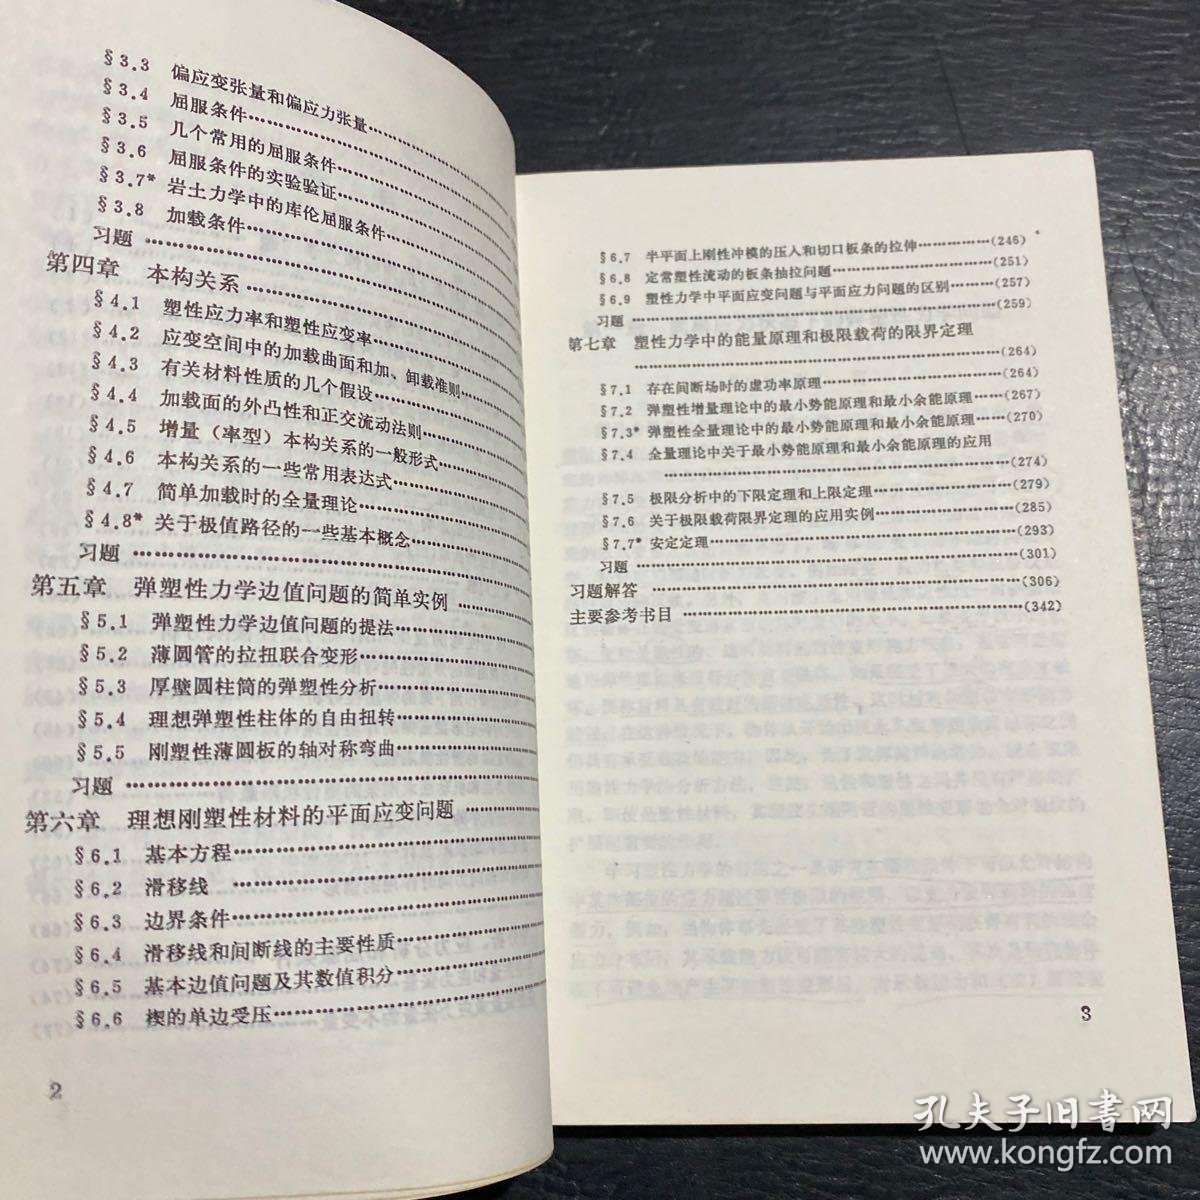 §3.3 偏应变张量和偏应力张量
§3.4 屈服条件
§3.5 几个常用的屈服条件
§3.6 屈服条件的实验验证
§3.7* 岩土力学中的库伦屈服条件
§3.8 加载条件
习题
第四章 本构关系
§4.1 塑性应力率和塑性应变率
§4.2 应变空间中的加载曲面和加、卸载准则
§4.3 有关材料性质的几个假设
§4.4 加载面的外凸性和正交流动法则
§4.5 增量（率型）本构关系的一般形式
§4.6 本构关系的一些常用表达式
§4.7 简单加载时的全量理论
§4.8* 关于极值路径的一些基本概念
习题
第五章 弹塑性力学边值问题的简单实例
§5.1 弹塑性力学边值问题的提法
§5.2 薄圆管的拉扭联合变形
§5.3 厚壁圆柱筒的弹塑性分析
§5.4 理想弹塑性柱体的自由扭转
§5.5 刚塑性薄圆板的轴对称弯曲
习题
第六章 理想刚塑性材料的平面应变问题
§6.1 基本方程
§6.2 滑移线
§6.3 边界条件
§6.4 滑移线和间断线的主要性质
§6.5 基本边值问题及其数值积分
§6.6 楔的单边受压
2
§6.7 半平面上刚性冲模的压入和切口板条的拉伸……………(246)
§6.8 定常塑性流动的板条抽拉问题……………(251)
§6.9 塑性力学中平面应变问题与平面应力问题的区别………(257)
习题……………(259)
第七章 塑性力学中的能量原理和极限载荷的限界定理
……………(264)
§7.1 存在间断场时的虚功率原理……………(264)
§7.2 弹塑性增量理论中的最小势能原理和最小余能原理……(267)
§7.3* 弹塑性全量理论中的最小势能原理和最小余能原理……(270)
§7.4 全量理论中关于最小势能原理和最小余能原理的应用
……………(274)
§7.5 极限分析中的下限定理和上限定理……………(279)
§7.6 关于极限载荷限界定理的应用实例……………(285)
§7.7* 安定定理……………(293)
习题……………(301)
习题解答……………(306)
主要参考书目……………(342)
3
孔夫子旧书网
www.kongfz.com